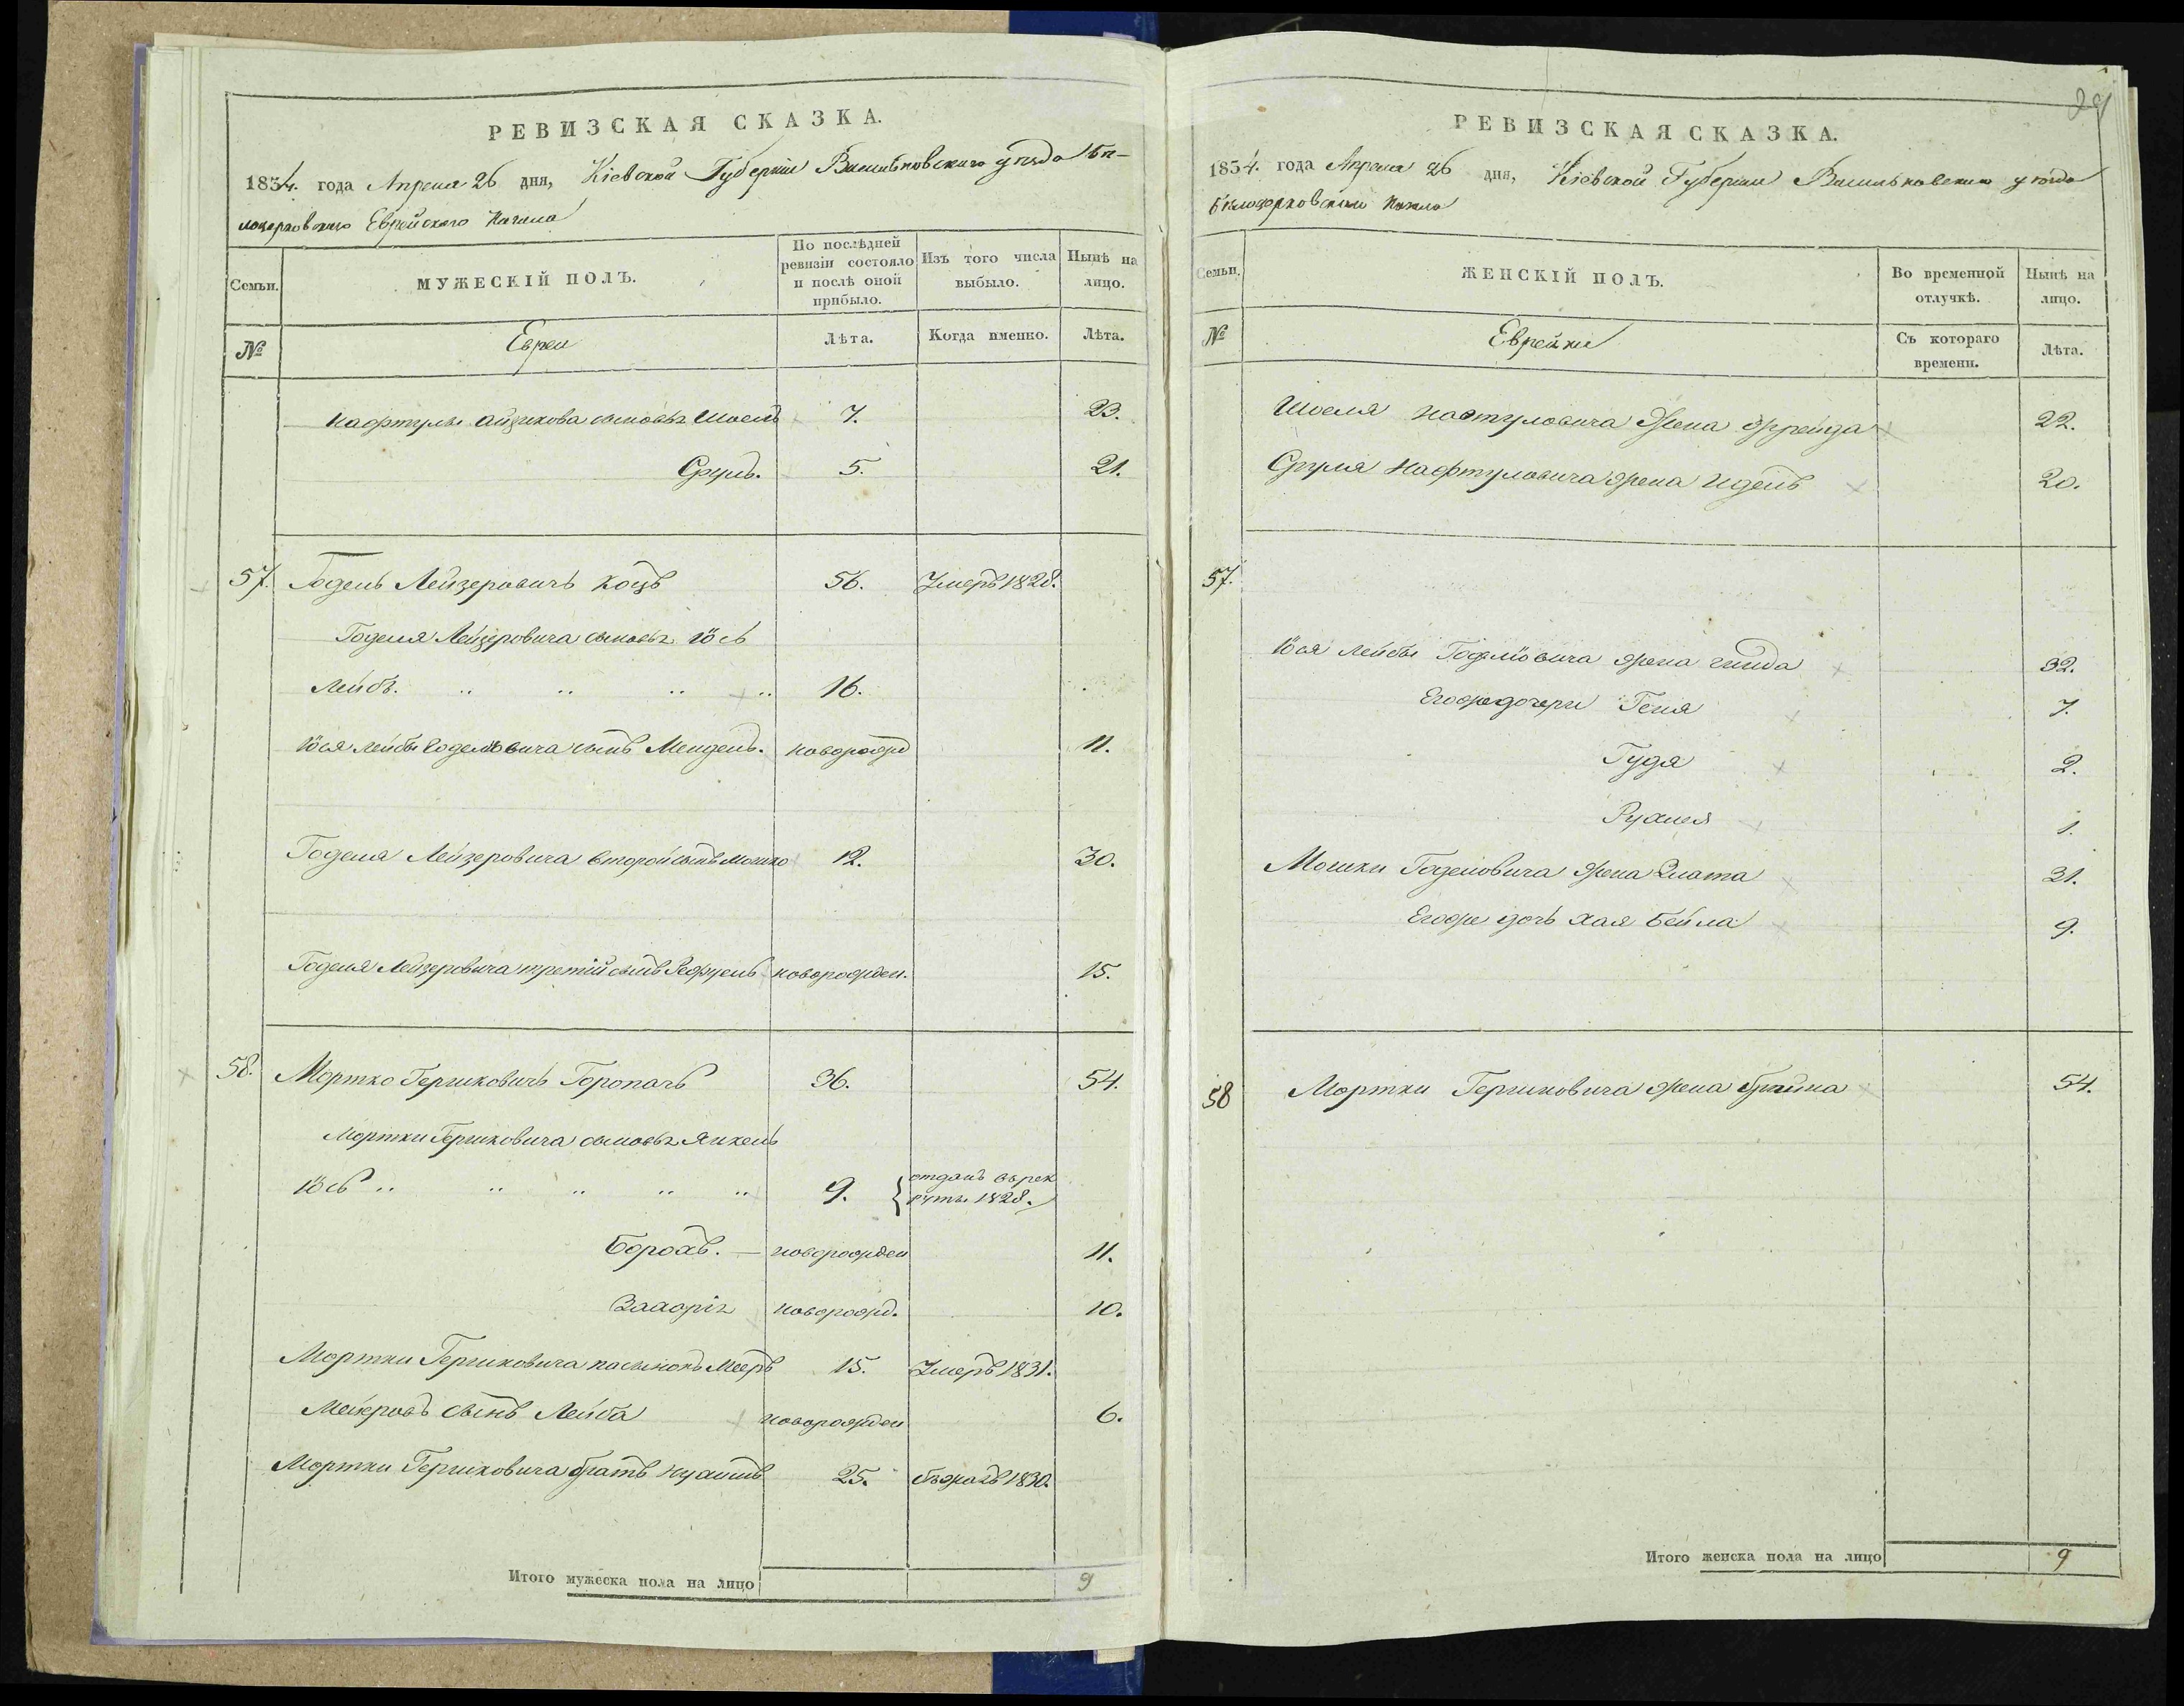 РЕВИЗСКАЯ СКАЗКА.
1834. года Апреля 26 дня, Кіевской Губерніи Васильковскаго уѣзда Бѣ-
лоцерковскаго Еврейскаго Кагала
Семьи. МУЖЕСКІЙ ПОЛЪ. По послѣдней ревизіи состояло и послѣ оной прибыло. Изъ того числа выбыло. Нынѣ на лицо.
№ Евреи Лѣта. Когда именно. Лѣта.
Нафтулы Айзикова сыновья Шоель 7. 23.
Сруль. 5. 21.
57. Годель Лейзеровичъ Коцъ 56. Умеръ 1828.
Годеля Лейзеровича сыновья Іось
Лейбъ. 16.
Іося Лейбы Годелiовича сынъ Мендель. новорожд 11.
Годеля Лейзеровича второй сынъ Мошко 12. 30.
Годеля Лейзеровича третій сынъ новорожден. 15.
58. Мортко Гершковичъ Горопачъ 36. 54.
Мортки Гершковича сыновья Янкель
Іось 9. отданъ въ рек
руты 1828.
Борохъ. — новорожден 11.
Захарія новорожд. 10.
Мортки Гершковича пасынокъ Мееръ 15. Умеръ 1831.
сынъ Лейба новорожден 6.
Мортки Гершковича братъ Нухимъ 25. бѣжалъ 1830.
Итого мужеска пола на лицо 9
29
РЕВИЗСКАЯ СКАЗКА.
1834. года Апреля 26 дня, Кіевской Губерніи Васильковскаго уѣзда
Бѣлоцерковскаго Кагала
Семьи. ЖЕНСКІЙ ПОЛЪ. Во временной отлучкѣ. Нынѣ на лицо.
№ Еврейки Съ котораго времени. Лѣта.
Шоеля Нафтуловича жена Фрейда 22.
Сруля Нафтуловича жена Идель 20.
57.
Іося Лейбы Годелiовича жена Гинда 32.
Егоже дочери Геня 7.
Гудя 2.
Рухля 1.
Мошки Годеловича жена Злата 31.
Егоже дочь Хая Бейла 9.
58 Мортки Гершковича жена Брайна 54.
Итого женска пола на лицо 9